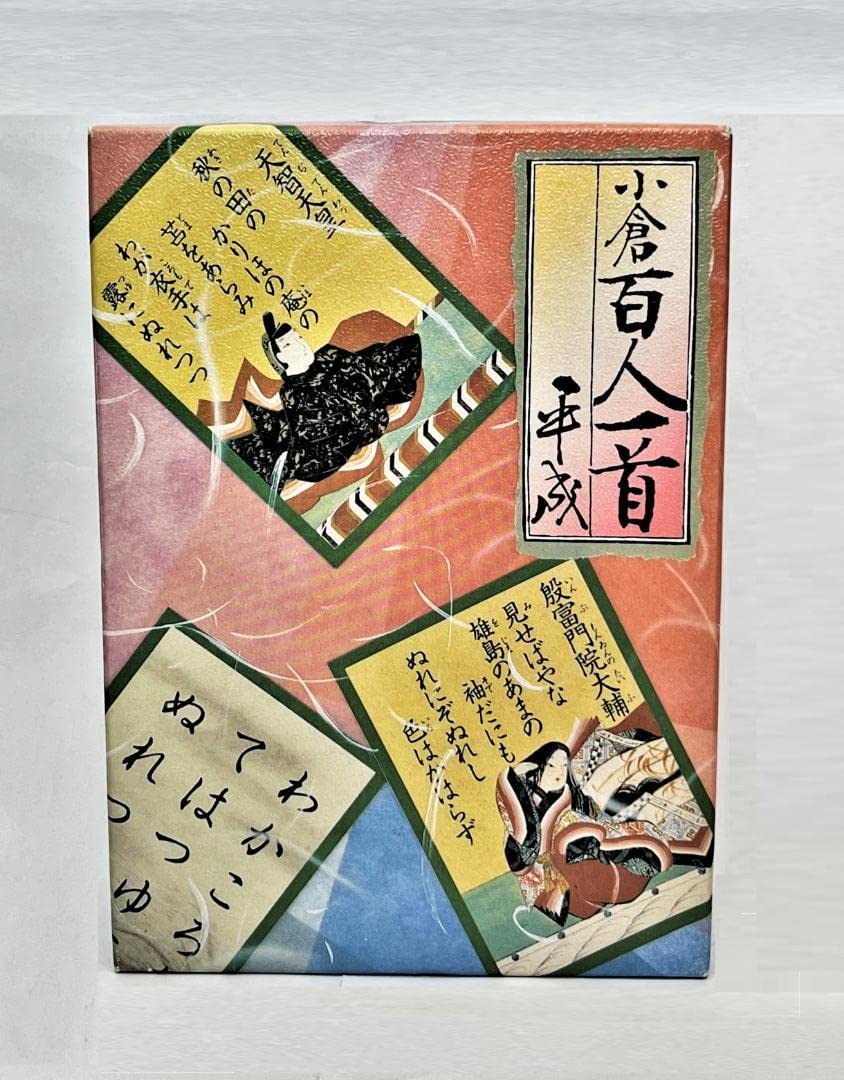 小倉百人一首
平成
天智天皇
秋の田の
かりほの庵の
苫をあらみ
わが衣手は
露にぬれつつ
殷富門院大輔
見せばやな
雄島のあまの
袖だにも
ぬれにぞぬれし
色はかはらず
わかころ
てはつゆ
ぬれつ